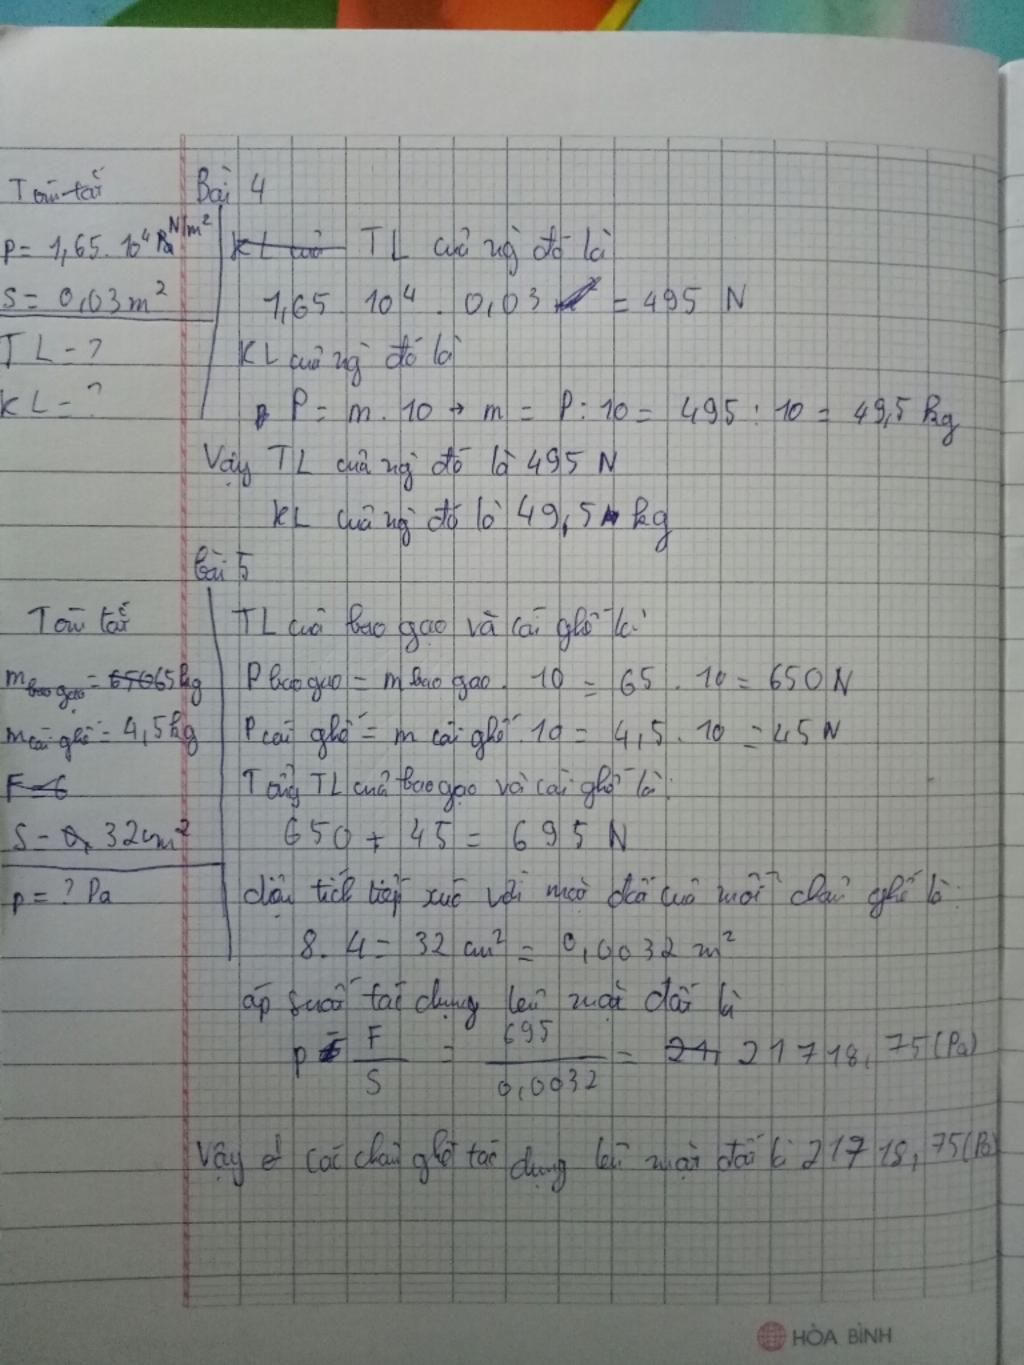 Tóm tắt
Bài 4
p = 1,65. 10⁴ Pa N/m²
S = 0,03 m²
TL = ?
KL = ?
KL của TL của ng đó là
1,65 . 10⁴ . 0,03 = 495 N
KL của ng đó là
P = m . 10 → m = P : 10 = 495 : 10 = 49,5 kg
Vậy TL của ng đó là 495 N
KL của ng đó là 49,5 kg
bài 5
Tóm tắt
m bao gạo = 65kg
m cái ghế = 4,5kg
F = 6
S = 32cm²
p = ? Pa
TL của bao gạo và cái ghế là:
P bao gạo = m bao gạo . 10 = 65 . 10 = 650 N
P cái ghế = m cái ghế . 10 = 4,5 . 10 = 45 N
Tổng TL của bao gạo và cái ghế là:
650 + 45 = 695 N
diện tích tiếp xúc với mặt đất của mỗi chân ghế là:
8. 4 = 32 cm² = 0,0032 m²
áp suất tác dụng lên mặt đất là
p = F/S = 695/0,0032 = 21, 21718,75(Pa)
Vậy các chân ghế tác dụng lên mặt đất là 21718,75(Pa)
HÒA BÌNH